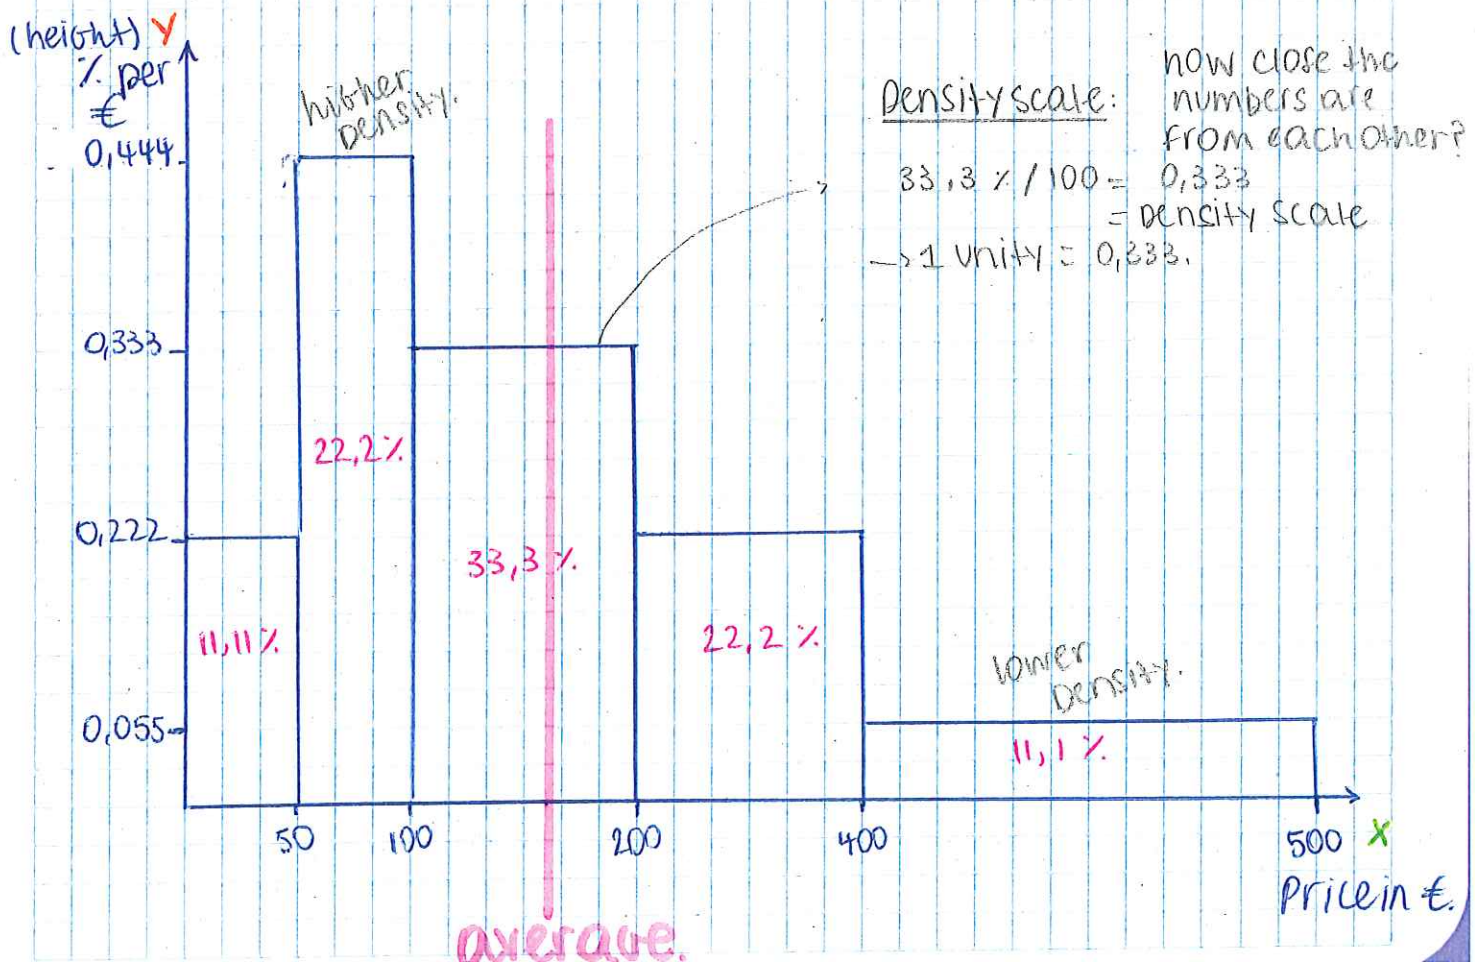 (height) Y
% per
€
0,444
higher
density.
Density scale:
how close the
numbers are
from each other?
33,3 % / 100 = 0,333
= Density scale
→ 1 unity = 0,333.
0,333
22,2%
0,222
33,3 %
11,11%
22,2 %
lower
Density.
0,055
11,1 %
50 100 200 400 500 X
Price in €.
average.